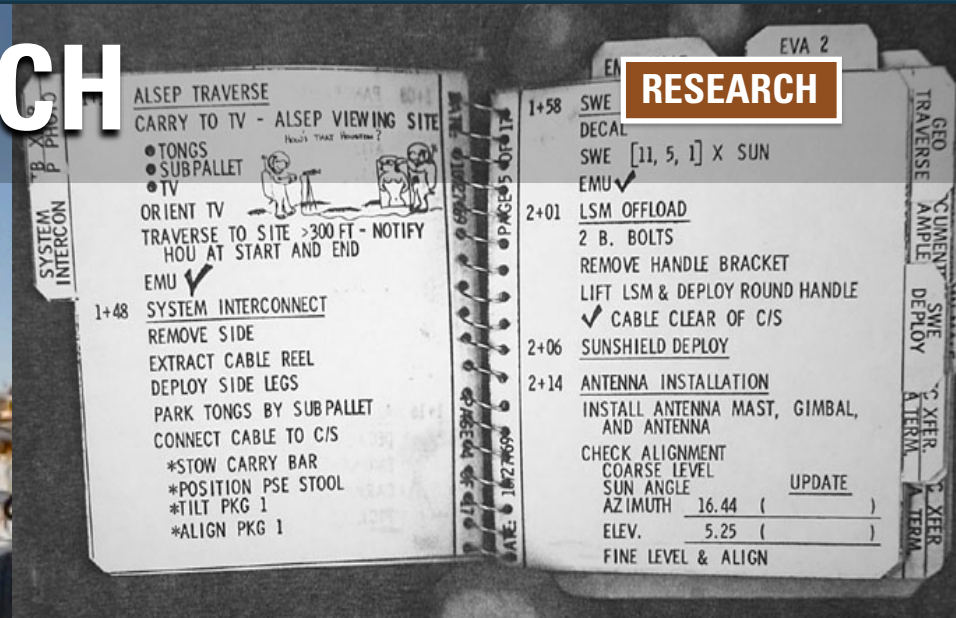 CH
RESEARCH
ALSEP TRAVERSE
CARRY TO TV - ALSEP VIEWING SITE
HOW'S THAT HOUSTON?
● TONGS
● SUBPALLET
● TV
ORIENT TV
TRAVERSE TO SITE >300 FT - NOTIFY
HOU AT START AND END
EMU ✓
1+48 SYSTEM INTERCONNECT
REMOVE SIDE
EXTRACT CABLE REEL
DEPLOY SIDE LEGS
PARK TONGS BY SUBPALLET
CONNECT CABLE TO C/S
*STOW CARRY BAR
*POSITION PSE STOOL
*TILT PKG 1
*ALIGN PKG 1
SYSTEM
INTERCON
EVA 2
1+58 SWE
DECAL
SWE [11, 5, 1] X SUN
EMU ✓
2+01 LSM OFFLOAD
2 B. BOLTS
REMOVE HANDLE BRACKET
LIFT LSM & DEPLOY ROUND HANDLE
✓ CABLE CLEAR OF C/S
2+06 SUNSHIELD DEPLOY
2+14 ANTENNA INSTALLATION
INSTALL ANTENNA MAST, GIMBAL,
AND ANTENNA
CHECK ALIGNMENT
COARSE LEVEL
SUN ANGLE UPDATE
AZIMUTH 16.44 ( )
ELEV. 5.25 ( )
FINE LEVEL & ALIGN
GEO
TRAVERSE
SWE
DEPLOY
XFER.
TERM.
XFER
TERM.